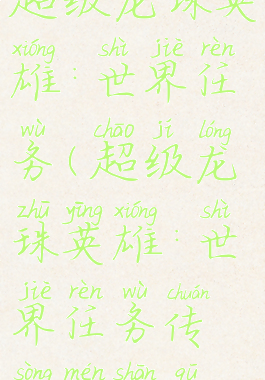 超级龙珠英
xióng shì jiè rèn
雄：世界任
wù chāo jí lóng
务（超级龙
zhū yīng xióng shì
珠英雄：世
jiè rèn wù chuán
界任务传
sòng mén shān gū